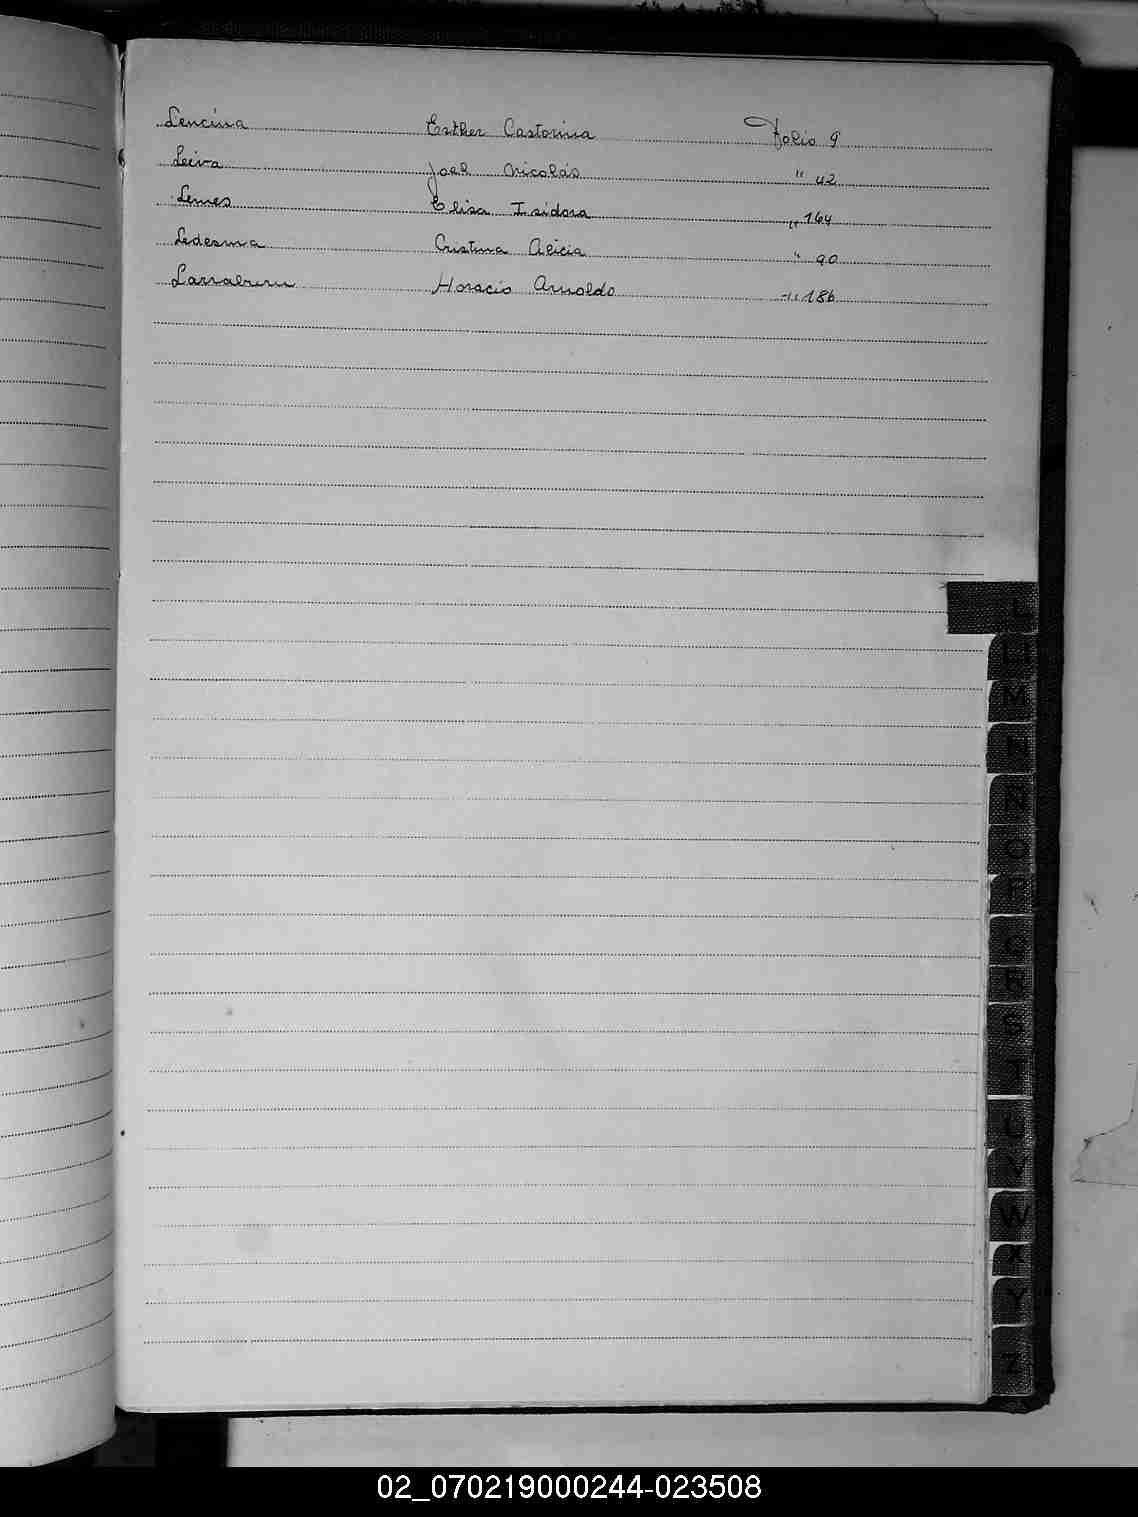 Lencina Esther Castorina Folio 9
Leiva Joel Nicolás " 42
Lemes Elisa Isidora " 164
Ledesma Cristina Alicia " 90
Larralburu Horacio Arnoldo " 186
L
M
N
Ñ
O
P
Q
R
S
T
U
V
W
X
Y
Z
02_070219000244-023508